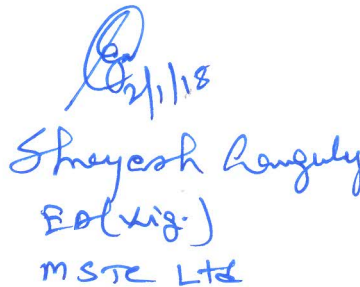 2/1/18
Shreyesh Ganguly
ED(Vig.)
MSTC Ltd